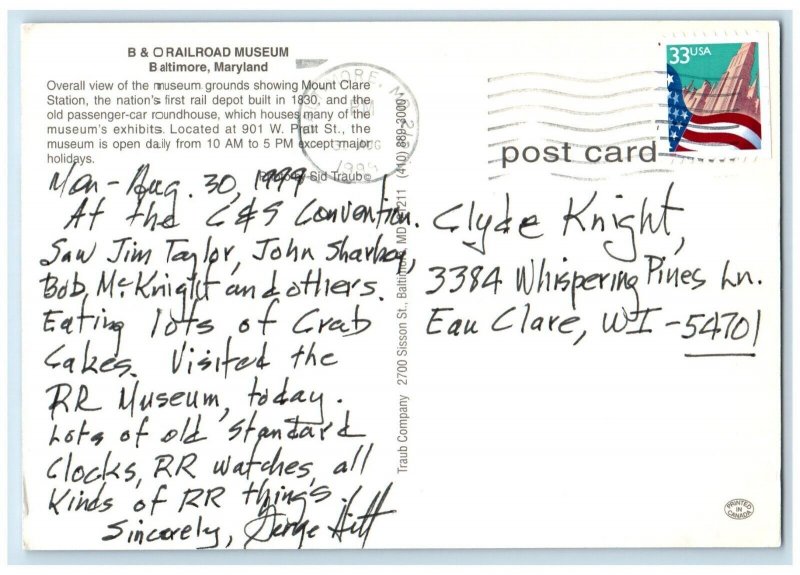 B & O RAILROAD MUSEUM
Baltimore, Maryland
Overall view of the museum grounds showing Mount Clare
Station, the nation's first rail depot built in 1830, and the
old passenger-car roundhouse, which houses many of the
museum's exhibits. Located at 901 W. Pratt St., the
museum is open daily from 10 AM to 5 PM except major
holidays.
Photo by Sid Traub©
Mon - Aug. 30, 1999
At the C&S Convention.
Saw Jim Taylor, John Sharkey,
Bob McKnight and others.
Eating lots of Crab
Cakes. Visited the
RR Museum, today.
Lots of old standard
Clocks, RR watches, all
Kinds of RR things!
Sincerely, George Hitt
Traub Company 2700 Sisson St., Baltimore, MD 21211 (410) 889-3000
33USA
post card
Clyde Knight,
3384 Whispering Pines Ln.
Eau Clare, WI - 54701
PRINTED
IN
CANADA